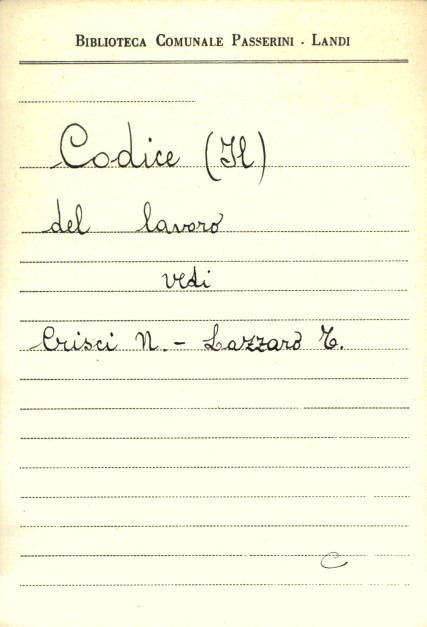 BIBLIOTECA COMUNALE PASSERINI - LANDI
Codice (Il)
del lavoro
vedi
Crisci N. - Lazzaro T.
C